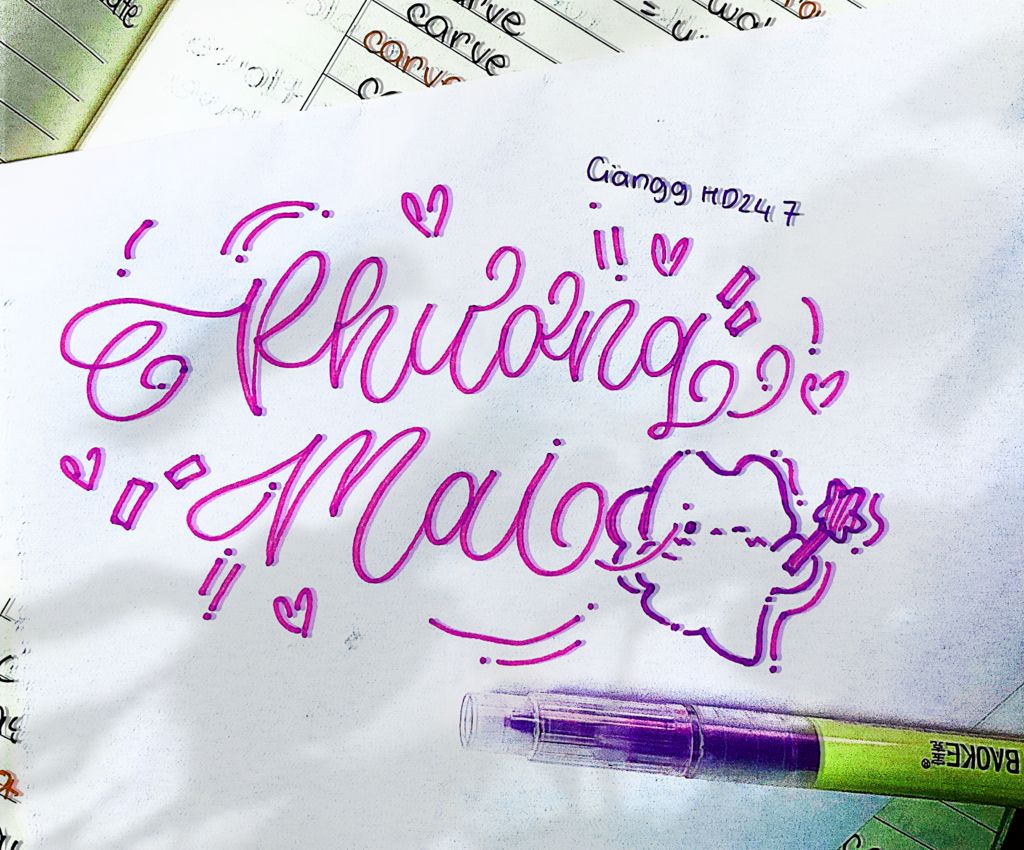 carve
carve
carve
Giangg HD247
Phương
Mai
BAOKE